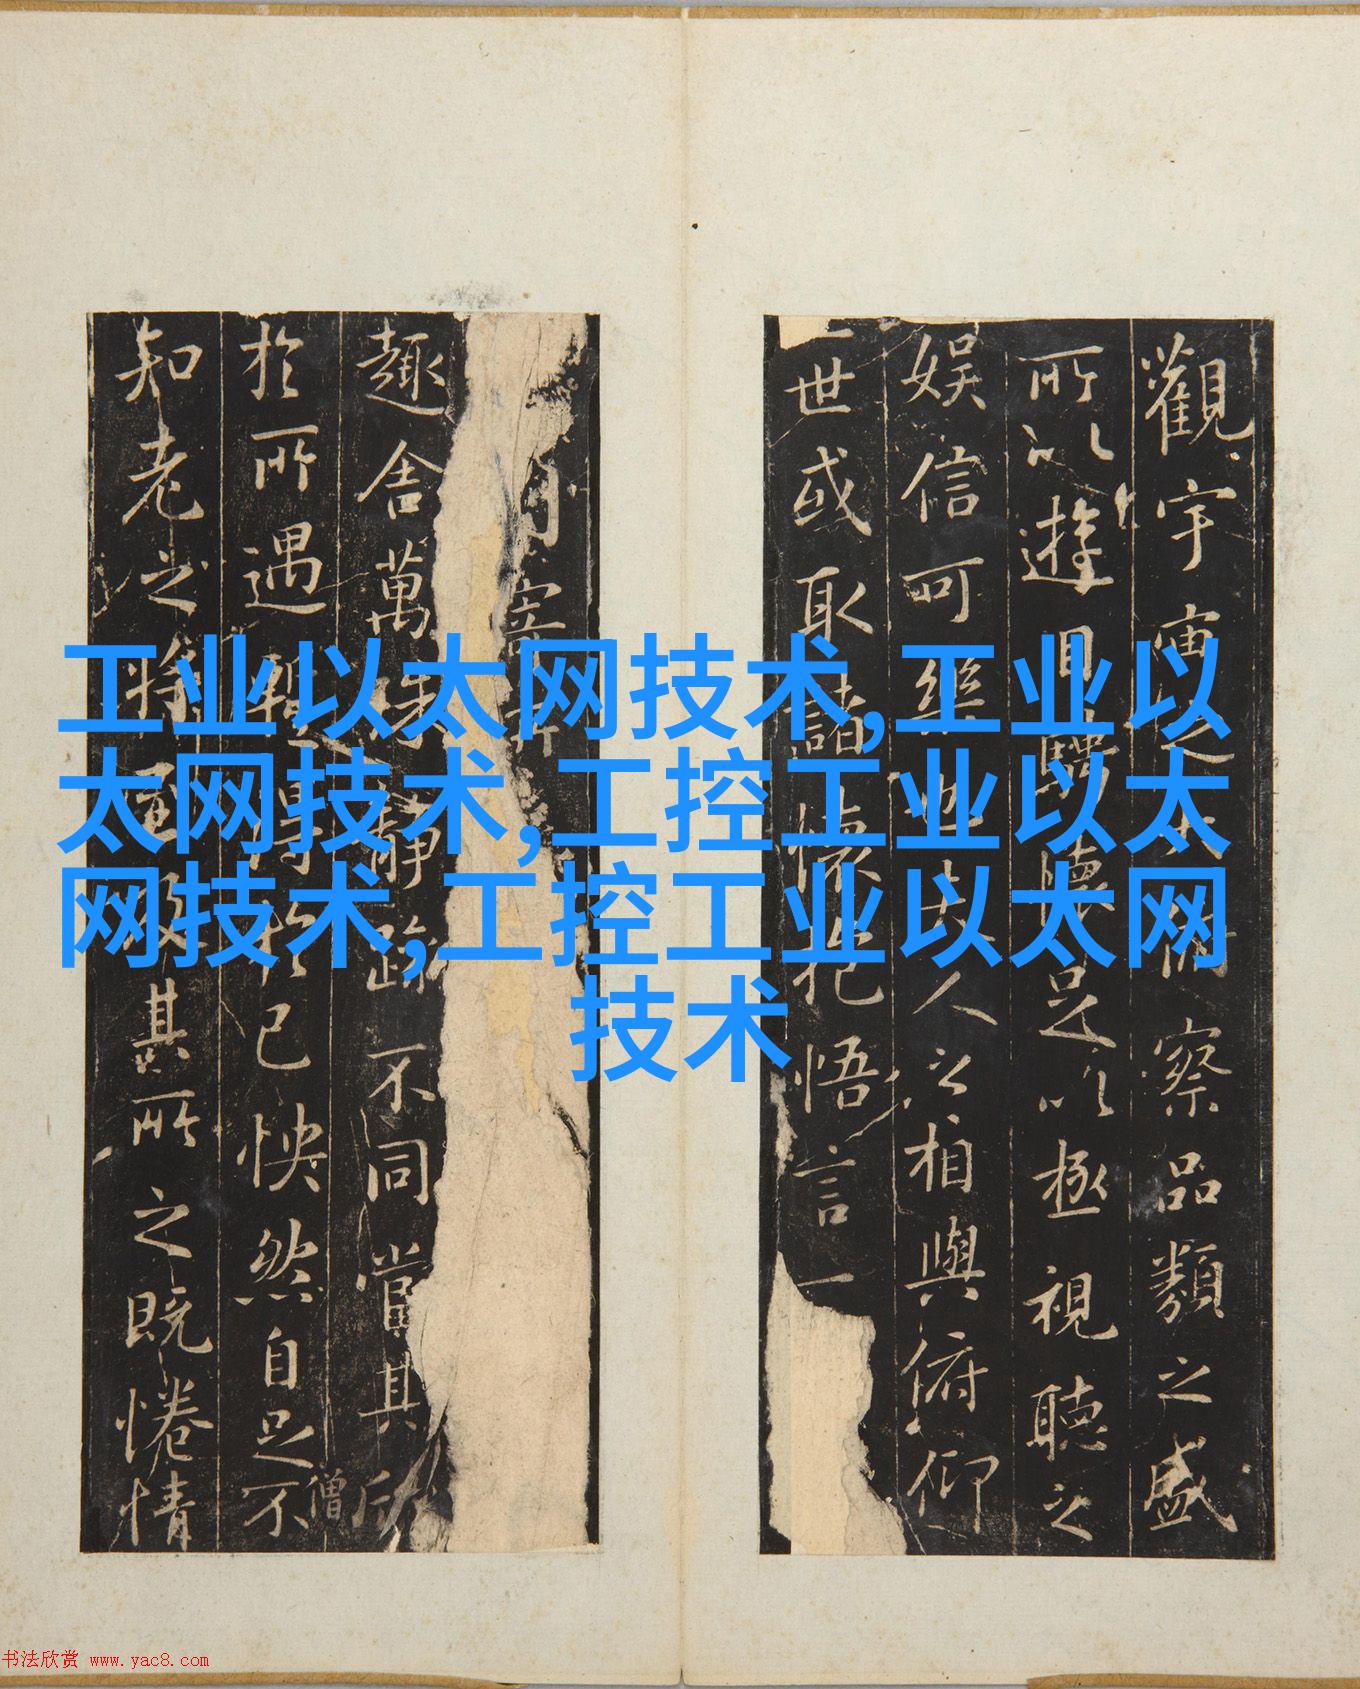 觀宇宙之大俯察品類之盛
所以遊目騁懷足以極視聽之
娛信可樂也夫人之相與俯仰
一世或取諸懷抱悟言一
內寄
趣舍萬殊靜躁不同當其欣
僧
於所遇暫得於己怏然自足不
知老之將至及其所之既惓情
工业以太网技术,工业以
太网技术,工控工业以太
网技术,工控工业以太网
技术
书法欣赏 www.yac8.com